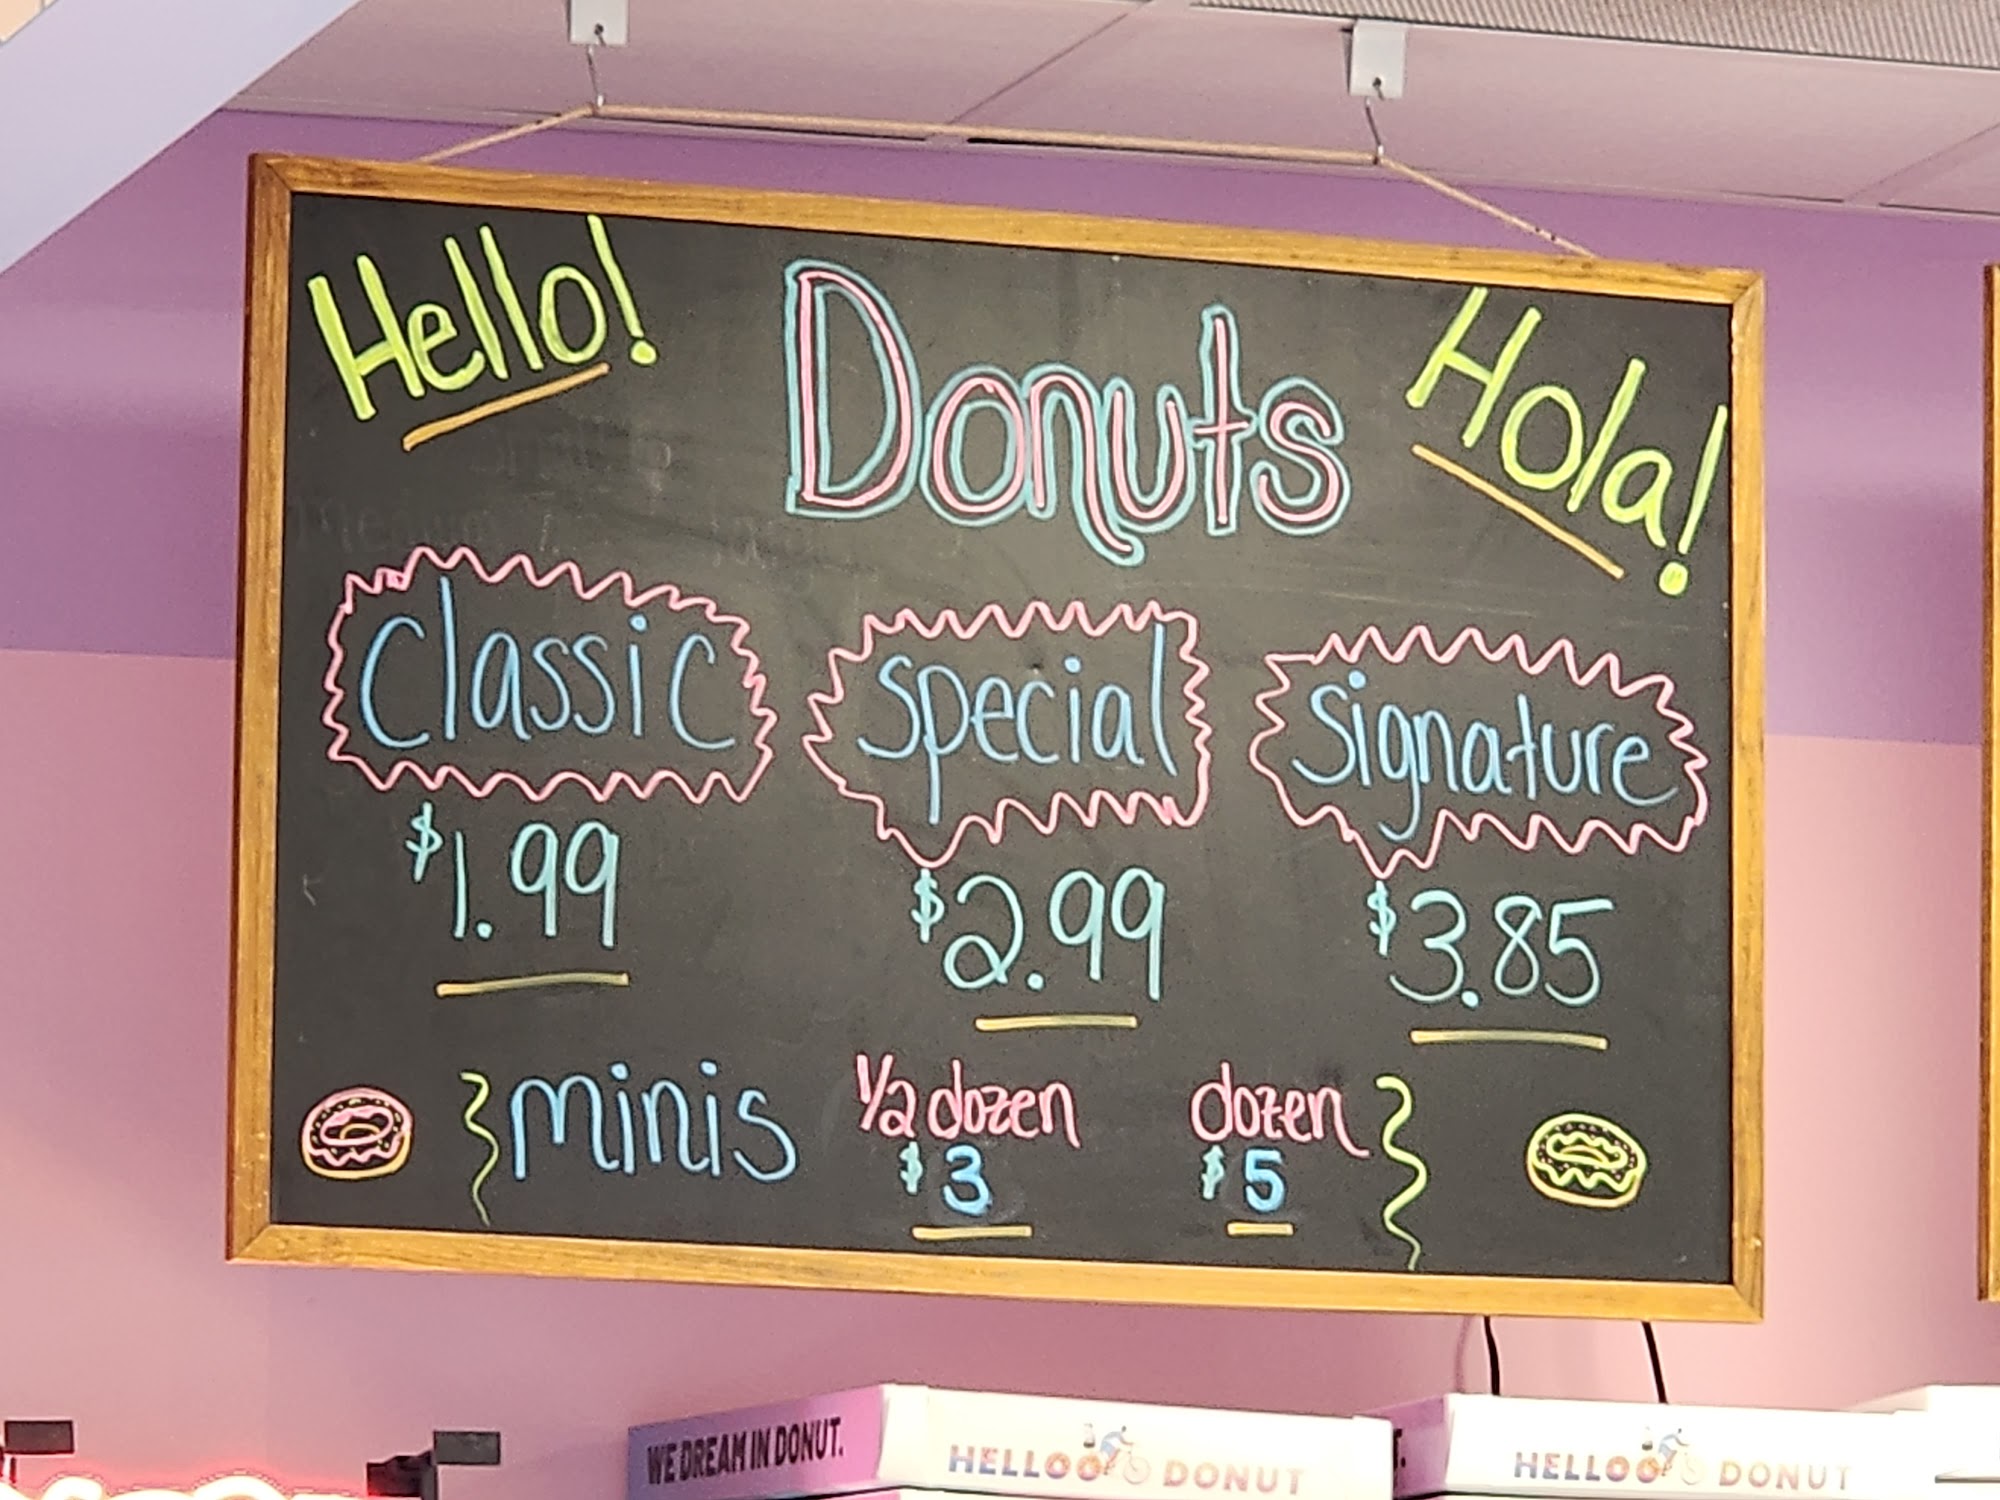 Hello!
Donuts
Hola!
Classic
Special
Signature
$1.99
$2.99
$3.85
minis
1/2 dozen
dozen
$3
$5
WE DREAM IN DONUT.
HELLOO DONUT
HELLOO DONUT